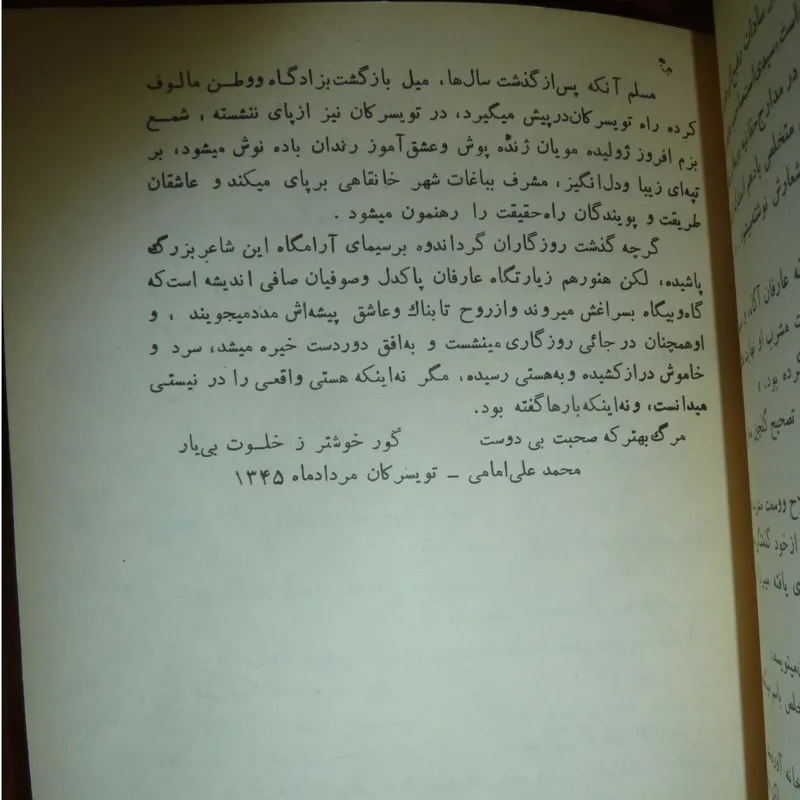 مسلم آنکه پس‌از گذشت سال‌ها، میل بازگشت بزادگاه ووطن مالوف
کرده راه تویسرکان‌درپیش میگیرد، در تویسرکان نیز ازپای ننشسته، شمع
بزم افروز ژولیده مویان ژنده پوش وعشق‌آموز رندان باده نوش میشود، بر
تپه‌ای زیبا ودل‌انگیز، مشرف بباغات شهر خانقاهی برپای میکند و عاشقان
طریقت و پویندگان راه‌حقیقت را رهنمون میشود .
گرچه گذشت روزگاران گرداندوه برسیمای آرامگاه این شاعر بزرگ
پاشیده، لکن هنورهم زیارتگاه عارفان پاکدل وصوفیان صافی اندیشه است‌که
گاه‌وبیگاه بسراغش میروند وازروح تابناك وعاشق پیشه‌اش مددمیجویند ، و
اوهمچنان درجائی روزگاری مینشست و به‌افق دوردست خیره میشد، سرد و
خاموش درازکشیده وبه‌هستی رسیده، مگر نه‌اینکه هستی واقعی را در نیستی
میدانست، ونه‌اینکه‌بارهاگفته بود.
مرگ بهترکه صحبت بی دوست گور خوشتر ز خلوت بی‌یار
محمد علی‌امامی – تویسرکان مردادماه ۱۳۴۵
عارفان آگاه
مشرب او
کرده بود.
تصحیح
از خود
یافته